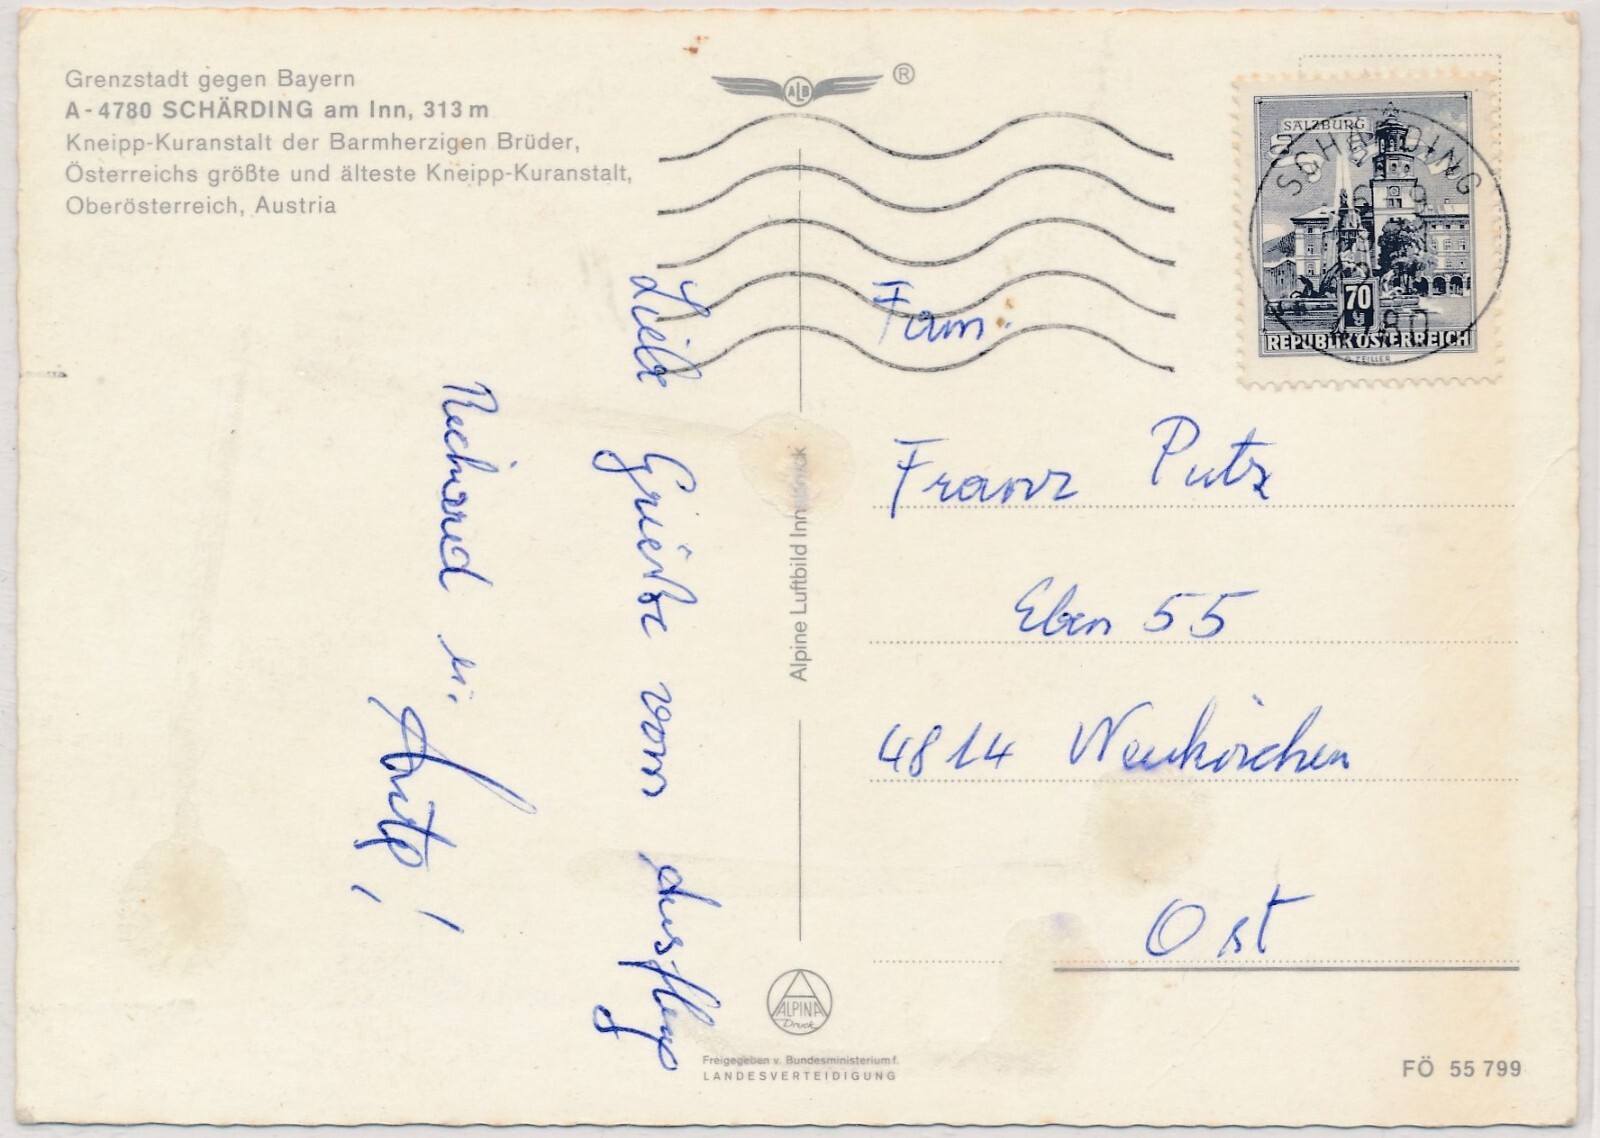 Grenzstadt gegen Bayern
A - 4780 SCHÄRDING am Inn, 313 m
Kneipp-Kuranstalt der Barmherzigen Brüder,
Österreichs größte und älteste Kneipp-Kuranstalt,
Oberösterreich, Austria
ALB ®
SALZBURG
70 g
REPUBLIK ÖSTERREICH
SCHÄRDING
4780
Liebe Grüße vom Ausflug
Richard u.
Anita!
Alpine Luftbild Innsbruck
Fam.
Franz Putz
Eben 55
4814 Neukirchen
Ost
ALPINA
Druck
Freigegeben v. Bundesministerium f.
LANDESVERTEIDIGUNG
FÖ 55 799